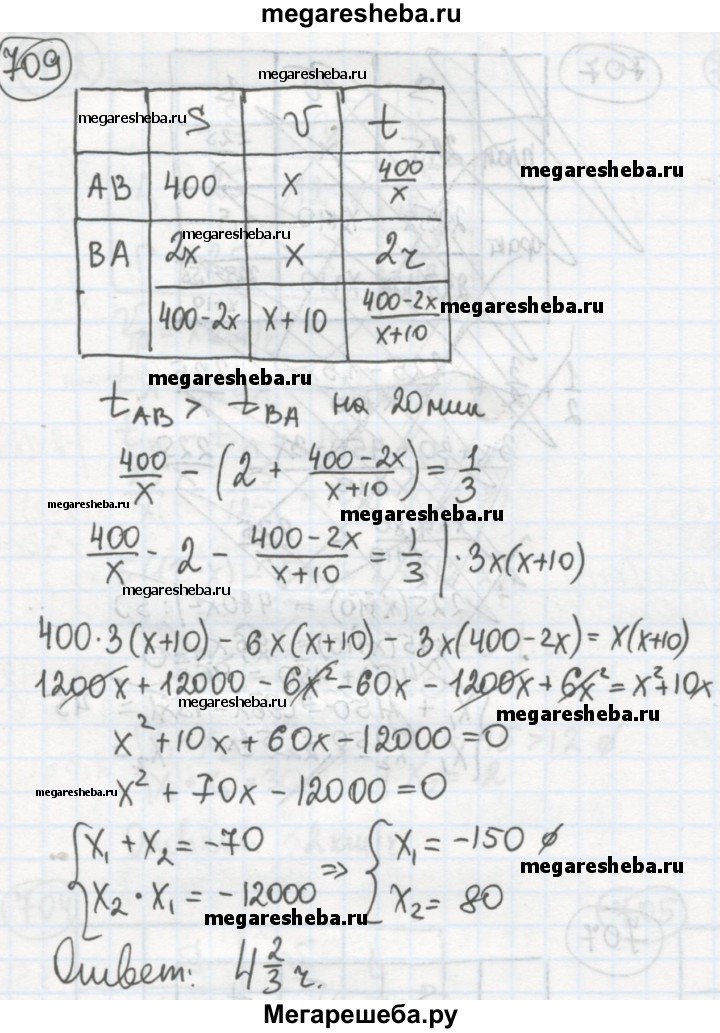 megaresheba.ru
709
megaresheba.ru
megaresheba.ru S V t
megaresheba.ru
AB 400 x 400/x
megaresheba.ru
BA 2x x 2ч
400-2x x+10 (400-2x)/(x+10)
megaresheba.ru
megaresheba.ru
t_AB > t_BA на 20 мин
400/x - (2 + (400-2x)/(x+10)) = 1/3
megaresheba.ru
megaresheba.ru
400/x - 2 - (400-2x)/(x+10) = 1/3 | ·3x(x+10)
megaresheba.ru
400·3(x+10) - 6x(x+10) - 3x(400-2x) = x(x+10)
1200x + 12000 - 6x² - 60x - 1200x + 6x² = x² + 10x
megaresheba.ru
x² + 10x + 60x - 12000 = 0
megaresheba.ru
x² + 70x - 12000 = 0
{ x₁ + x₂ = -70 ⇒ { x₁ = -150 ∅
megaresheba.ru
x₂ · x₁ = -12000 x₂ = 80
megaresheba.ru
Ответ: 4 2/3 ч.
Мегарешеба.ру